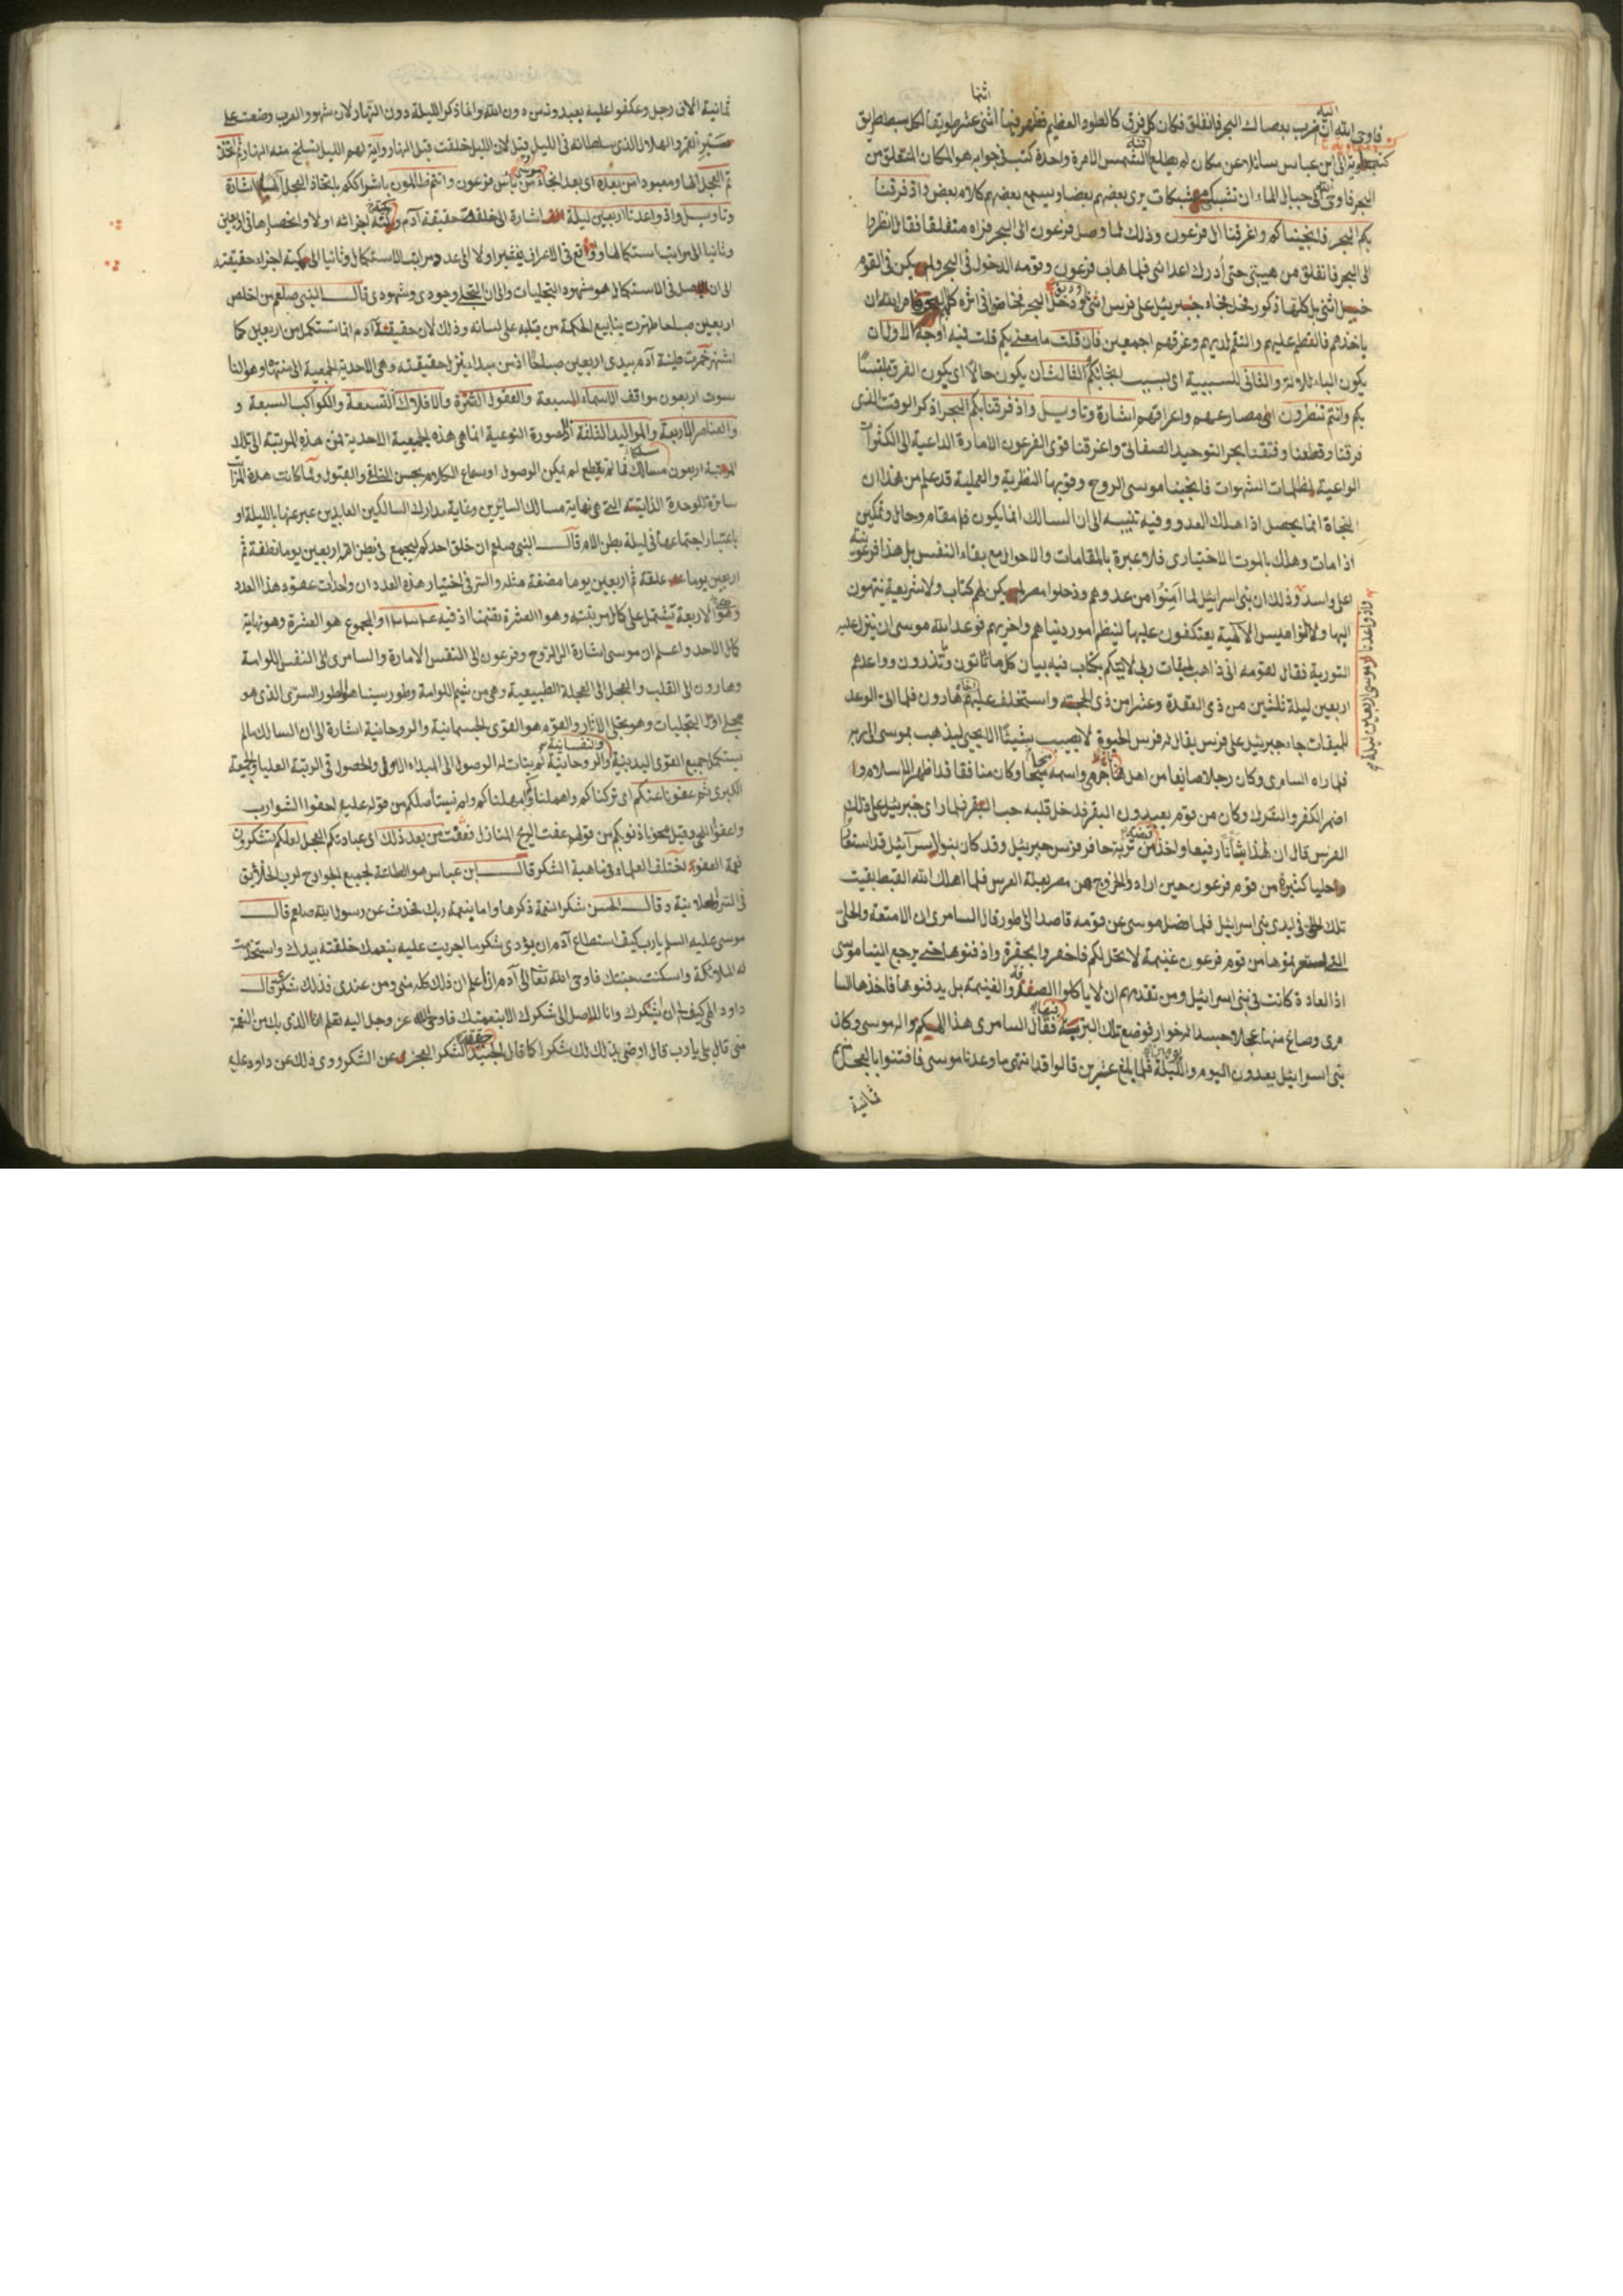 فاوحى الله اليه ان اضرب بعصاك البحر فانفلق فكان كل فرق كالطود العظيم فظهر فيها اثنى عشر طريقا لكل سبط طريق
كتب معوية الى ابن عباس يسأله عن مكان لم يطلع الشمس الا مرة واحدة كتب فى جوابه هو المكان المنفلق من
البحر فاوحى الله الى جبال الماء ان تشبكى مشبكات يرى بعضهم بعضا ويسمع بعضهم كلام بعض واذ فرقنا
بكم البحر فانجيناكم واغرقنا ال فرعون وذلك لما وصل فرعون الى البحر فراه منفلقا فقال انظروا
الى البحر فانفلق من هيبتى حتى أدرك اعدائى فلما هاب فرعون وقومه الدخول فى البحر ولم يكن فى القوم
خيل انثى بل كلها ذكور فجاء جبرئيل على فرس انثى ودخل البحر فخاضوا فى اثره فامر الله ان
ياخذهم فالتطم عليهم والتقم لديهم وغرقهم اجمعين فان قلت ما معنى بكم قلت فيه اوجه الاول ان
يكون الباء للآلة والثانى للسببية اى بسبب انجائكم الثالث ان يكون حالا اى يكون الفرق ملتبسا
بكم وانتم تنظرون الى مصارعهم واغراقهم اشارة وتأويل واذ فرقنا بكم البحر اذكر الوقت الذى
فرقنا وقطعنا وفتقنا بحر التوحيد الصفاتى واغرقنا قوى الفرعون الامارة الداعية الى الكثرات
الواعية لظلمات الشهوات فانجينا موسى الروح وقويها النظرية والعملية قد علم من هذا ان
النجاة انما يحصل اذا هلك العدو وفيه تنبيه الى ان السالك انما يكون فى مقام وحال وتمكين
اذا مات وهلك بالموت الاختيارى فلا عبرة بالمقامات والاحوال مع بقاء النفس بل هذا فرعونية
اعلى واسد وذلك ان بنى اسرائيل لما امنوا من عدوهم ودخلوا مصر لم يكن لهم كتاب ولا شريعة ينتهون
واذ واعدنا موسى اربعين ليلة
اليها ولا نواميس الالهية يعتكفون عليها لينظم امور دنياهم واخريهم فوعد الله موسى ان ينزل عليه
التورية فقال لقومه انى ذاهب لميقات ربى لاتيتكم بكتاب فيه بيان كل ما تاتون وتذرون وواعدهم
اربعين ليلة ثلثين من ذى القعدة وعشرا من ذى الحجة واستخلف عليهم اخاه هارون فلما اتى الوعد
للميقات جاء جبرئيل على فرس يقال له فرس الحيوة لا يصيب شيئا الا يحيى ليذهب بموسى الى ربه
فلما راه السامرى وكان رجلا صائغا من اهل باجرمى واسمه ميخا وكان منافقا قد اظهر الاسلام و
اضمر الكفر والشرك وكان من قوم يعبدون البقر فدخل قلبه حب البقر فلما راى جبرئيل على ذلك
الفرس قال ان لهذا شأنا رفيعا واخذ من تربة حافر فرس جبرئيل وقد كان بنوا اسرآئيل قد استعاروا
حليا كثيرة من قوم فرعون حين ارادوا الخروج من مصر بعلة العرس فلما اهلك الله القبط بقيت
تلك الحلى فى ايدى بنى اسرائيل فلما فصل موسى عن قومه قاصدا الى طور قال السامرى ان الامتعة والحلى
التى استعرتموها من قوم فرعون غنيمة لا يحل لكم فاحفروا بحفرة وادفنوها حتى يرجع الينا موسى
اذ العادة كانت فى بنى اسرائيل ومن تقدمهم ان لا ياكلوا الصدقة والغنيمة بل يدفنوها فاخذها السا
مرى وصاغ منها عجلا جسدا له خوار فوضع تلك التربة فيها فقال السامرى هذا الهكم واله موسى وكان
بنى اسرائيل يعدون اليوم والليلة فلما بلغ عشرين قالوا قد انتهى ما وعدنا موسى فافتتنوا بالعجل
ثمانية
ثمانية الاف رجل وعكفوا عليه يعبدونه من دون الله وانما ذكر الليلة دون النهار لان شهور العرب وضعت على
سير القمر والهلال الذى سلطانه فى الليل وقيل لان الليل خلقت قبل النهار وآية لهم الليل نسلخ منه النهار ثم اتخذ
تم العجل الها ومعبودا من بعده اى بعد انجاء موسى من بأس فرعون وانتم ظالمون باشراككم باتخاذ العجل الها اشارة
وتأويل واذ واعدنا اربعين ليلة اشارة الى خلقة حقيقة آدم وكمية اجزائه اولا وانحصارها فى الاربعين
وثانيا الى مراتب استكمالها ووقع فى الاعراف يفتقر اولا الى عدد ومراتب الاستكمال وثانيا الى كمية اجزاء حقيقته
الى ان الاصل فى الاستكمال هو شهود التجليات والى ان التجلى وجودى وشهودى قال النبى صلعم من اخلص
اربعين صباحا ظهرت ينابيع الحكمة من قلبه على لسانه وذلك لان حقيقة آدم انما تستكمل من اربعين كما
اشتهر خمرت طينة آدم بيدى اربعين صباحا اذ من مبداء تنزل حقيقته وهى الاحدية الجمعية الى منتهاه وهو الناسوت
سوت اربعون مواقف الاسماء السبعة والعقول العشرة والافلاك التسعة والكواكب السبعة و
والعناصر الاربعة والمواليد الثلثة الصورة النوعية انما هى هذه الجمعية الاحدية فمن هذه المرتبة الى تلك
المرتبة اربعون مسالك فما لم يقطع لم يمكن الوصول او سماع الكلام بحسن التلقى والقبول ولما كانت هذه المراتب
ساترة للوحدة الذاتية التى هى نهاية مسالك السائرين وغاية مدارك السالكين العابدين عبر عنها بالليلة او
باعتبار اجتماعها فى ليلة بطن الام قال النبى صلعم ان خلق احدكم ليجمع فى بطن امه اربعين يوما نطفة ثم
اربعين يوما علقة ثم اربعين يوما مضغة مثله والسر فى اختيار هذه العدد ان واحدات عقود هذا العدد
وهو الاربعة تشتمل على كمال مرتبته وهو العشرة بقيمتها اذ فيه ٤ ٣ ٢ ١ والمجموع هو العشرة وهو نهاية
كمال الاحد واعلم ان موسى اشارة الى الروح وفرعون الى النفس الامارة والسامرى الى النفس اللوامة
وهارون الى القلب والعجل الى العجلة الطبيعية وهى من شيم اللوامة وطور سينا هو الطور السرى الذى هو
مجلى اول التجليات وهو تجلى الاثار والقوم هو القوى الجسمانية والروحانية اشارة الى ان السالك ما لم
يستكمل جميع القوى البدنية والنفسانية والروحانية لم يتأت له الوصول الى المبداء الاول والحصول فى الرتبة العليا والجمعية
الكبرى ثم عفونا عنكم اى تركناكم واهملناكم وامهلناكم ولم نستأصلكم من قوله عليم احفوا الشوارب
واعفوا اللحى وقيل محونا ذنوبكم من قولهم عفت الريح المنازل فعفت من بعد ذلك اى عبادتكم العجل لعلكم تشكرون
نعمة العفو اختلف العلماء فى ماهية الشكر قال ابن عباس هو الطاعة لجميع الجوارح لرب الخلايق
فى السر والعلانية وقال الحسن شكر النعمة ذكرها واما بنعمة ربك فحدث عن رسول الله صلعم قال
موسى عليه السلم يا رب كيف استطاع آدم ان يؤدى شكر ما اجريت عليه بنعمك خلقته بيدك واسجدت
له الملائكة واسكنته جنتك فاوحى الله تعالى آدم انه اعلم ان ذلك كله منى ومن عندى فذلك شكر قال
داود الهى كيف لى ان اشكرك وانا لا اصل الى شكرك الا بنعمتك فاوحى الله عز وجل اليه تعلم ان الذى بك من النعمة
منى قال بلى يا رب قال ارضى بذلك لك شكرا كما قال الجنيد حقيقة الشكر العجز عن الشكر وروى ذلك عن داود عليه